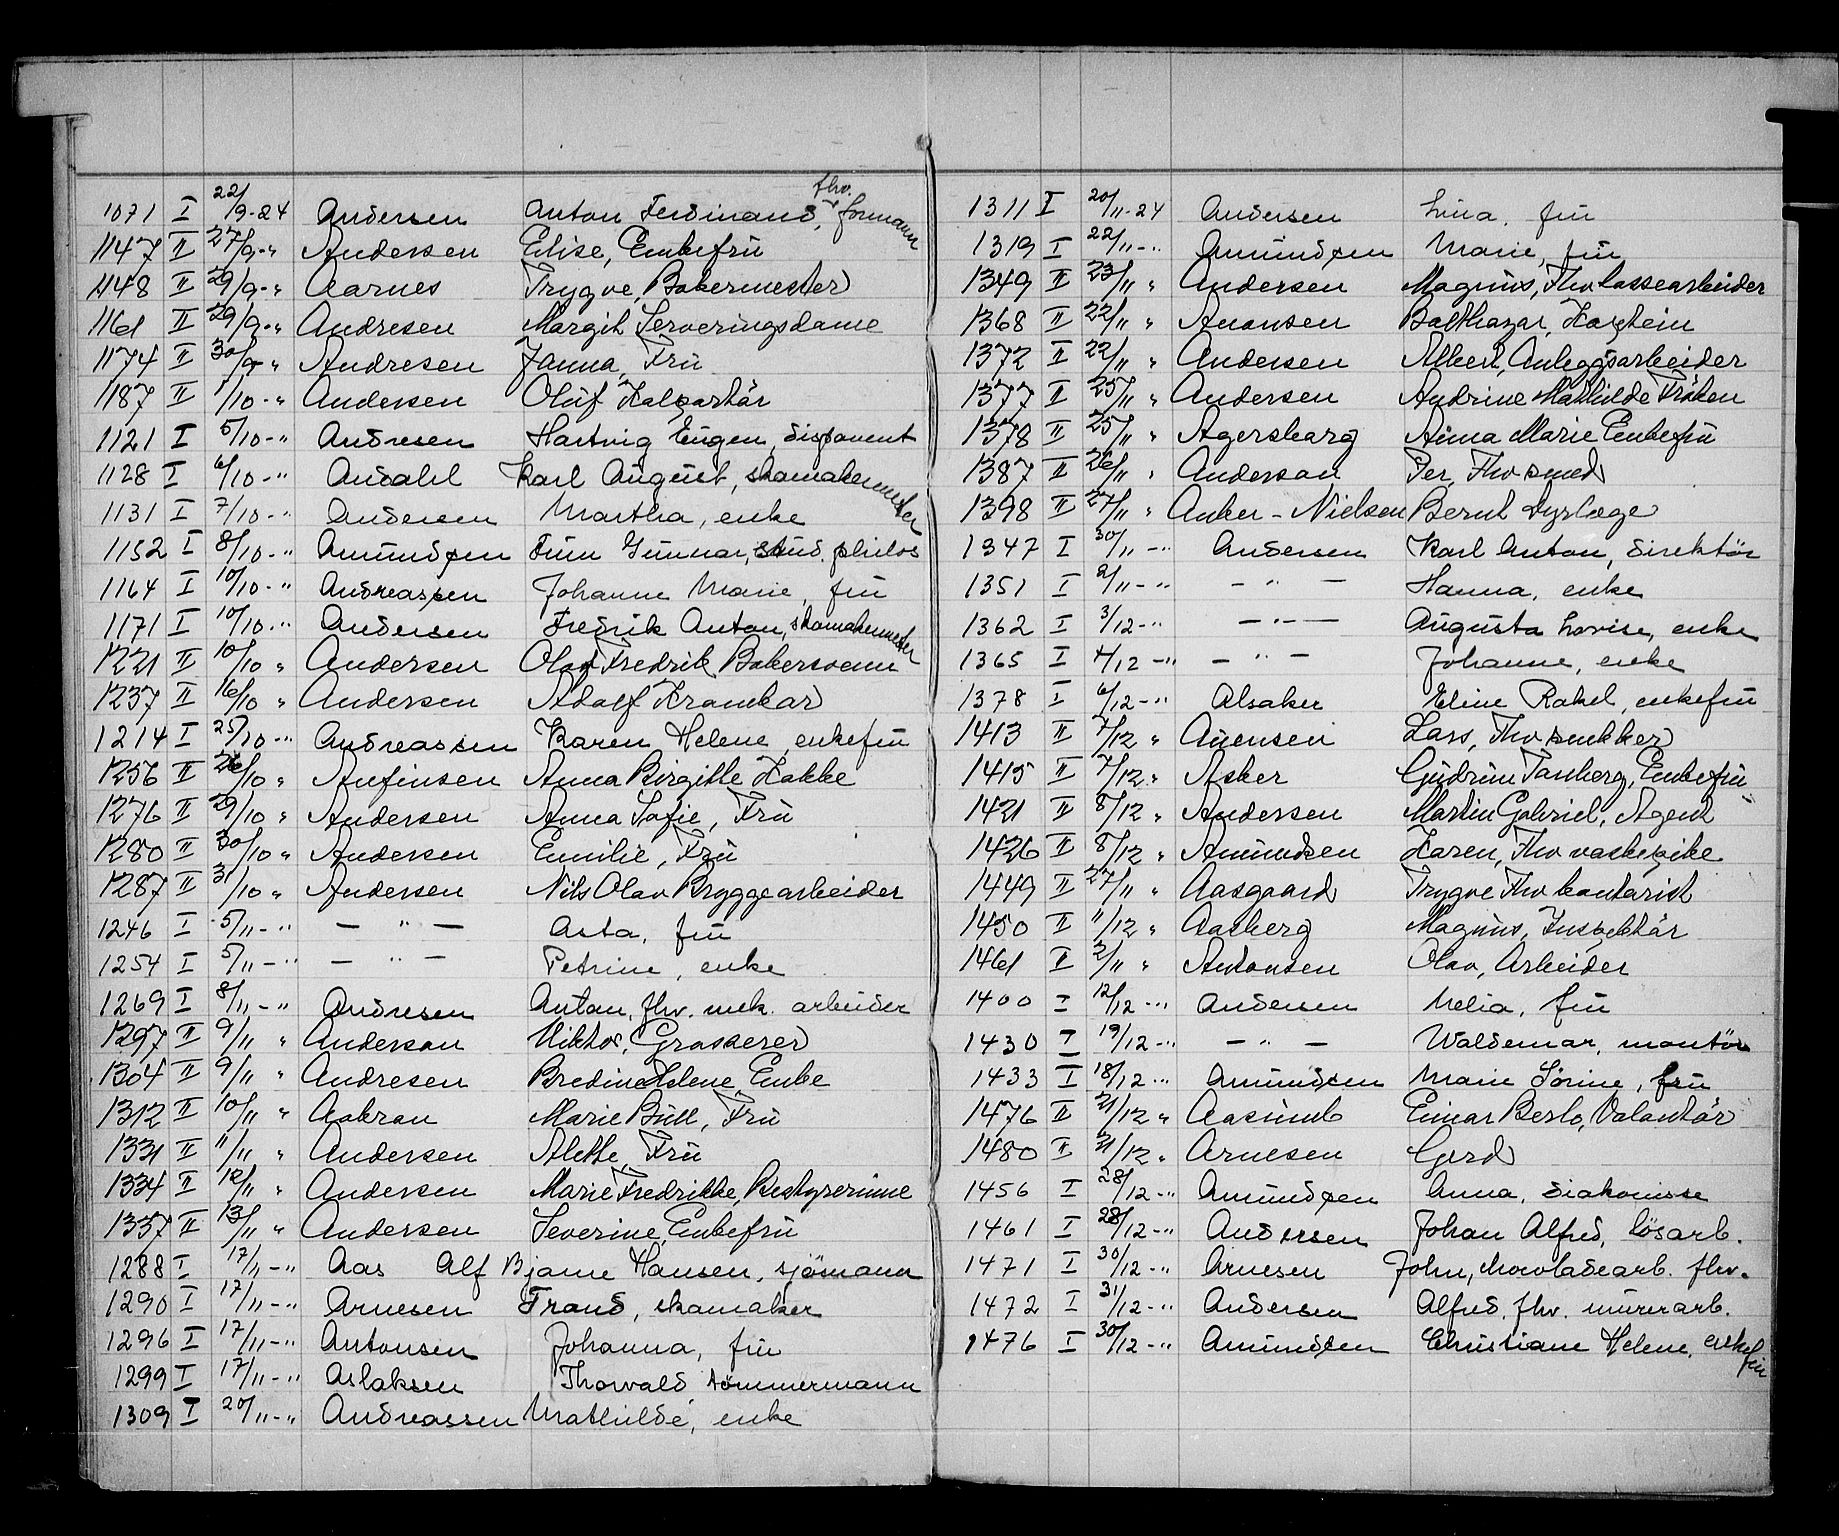 1071 I 22/9-24 Andersen Anton Ferdinand, fhv. formann
1147 II 27/9-" Andersen Elise, Enkefru
1148 II 29/9-" Aarnes Trygve, Bakermester
1161 II 29/9-" Andresen Margit Serveringsdame
1174 II 30/9-" Andresen Janna, Fru
1187 II 1/10-" Andersen Oluf Kalfaktör
1121 I 5/10-" Andresen Hartvig Eugen, disponent
1128 I 6/10-" Andahl Karl August, skomakermester
1131 I 7/10-" Andersen Martha, enke
1152 I 8/10-" Amundsen Finn Gunnar, stud. philos
1164 I 10/10-" Andreassen Johanne Marie, fru
1171 I 10/10-" Andersen Fredrik Anton, skomakermester
1221 II 10/10 " Andersen Olaf Fredrik Bakersvenn
1237 II 16/10 " Andersen Adolf Krankar
1214 I 25/10-" Andreassen Karen Helene, enkefru
1256 II 26/10 " Anfinsen Anna Birgitte Kokke
1276 II 29/10 " Andersen Anna Sofie, Fru
1280 II 30/10 " Andersen Emilie, Fru
1287 II 31/10 " Andersen Nils Olav Bryggearbeider
1246 I 5/11-" — " — Asta, fru
1254 I 5/11-" — " — Petrine, enke
1269 I 8/11-" Andresen Anton, fhv. mek. arbeider
1297 II 9/11 " Anderson Viktor, Grosserer
1304 II 9/11 " Andresen Bredine Helene, Enke
1312 II 10/11 " Askran Marie Bull, Fru
1331 II 11/11 " Andersen Alette, Fru
1334 II 12/11 " Andersen Marie Fredrikke, Bestyrerinne
1337 II 13/11 " Andersen Severine, Enkefru
1288 I 17/11-" Aas Alf Bjarne Hansen, sjömann
1290 I 17/11-" Arnesen Frand, skomaker
1296 I 17/11-" Antonsen Johanna, fru
1299 I 17/11-" Aslaksen Thorvald tömmermann
1309 I 20/11-" Andreassen Mathilde, enke
1311 I 20/11-24 Andersen Lina, fru
1319 I 22/11-" Amundsen Marie, fru
1349 II 23/11 " Andersen Magnus, Fhv lossearbeider
1368 II 22/11 " Anonsen Balthazar, Kaptein
1372 II 22/11 " Andersen Albert, Anleggsarbeider
1377 II 25/11 " Andersen Andrine Mathilde Fröken
1378 II 25/11 " Agersborg Anna Marie Enkefru
1387 II 26/11 " Anderson Per, Fhv smed
1398 II 27/11 " Anker-Nielsen Bernt Dyrlæge
1347 I 30/11-" Andersen Karl Anton, direktör
1351 I 2/11-" — " — Hanna, enke
1362 I 3/12-" — " — Augusta Lovise, enke
1365 I 4/12-" — " — Johanne, enke
1378 I 6/12-" Alsaker Eline Rakel, enkefru
1413 II 7/12 " Auensen Lars, Fhv snekker
1415 II 7/12 " Asker Gudrun Tanberg, Enkefru
1421 II 8/12 " Andersen Martin Gabriel, Agent
1426 II 8/12 " Amundsen Karen, Fhv vaskepike
1449 II 27/11 " Aasgaard Trygve Fhv kontorist
1450 II 11/12 " Aasberg Magnus, Inspektör
1461 II 2/11 " Antonsen Olav, Arbeider
1400 I 12/12-" Andersen Melia, fru
1430 I 19/12-" — " — Waldemar, montör
1433 I 18/12-" Amundsen Marie Sörine, fru
1476 II 21/12 " Aasumb Einar Berlo, Volontör
1480 II 21/12 " Arnesen Gerd
1456 I 28/12-" Amundsen Anna, diakonisse
1461 I 28/12-" Andersen Johan Alfred, lösarb.
1471 I 30/12-" Arnesen John, chocoladearb. fhv.
1472 I 31/12-" Andersen Alfred, fhv. murerarb.
1476 I 30/12-" Amundsen Christiane Helene, enkefru